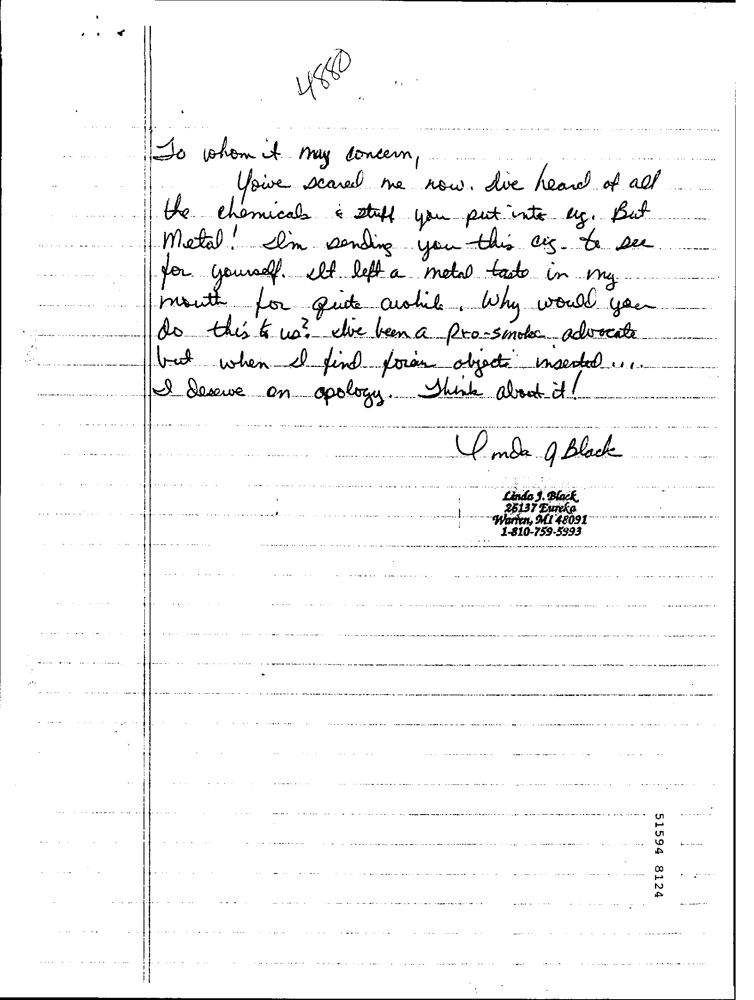 4880
To whom it may concern,
You've scared me now. I've heard of all
the chemicals & stuff you put into cig. But
Metal! I'm sending you this cig. to see
for yourself. It left a metal taste in my
mouth for quite awhile. Why would you
do this to us? I've been a pro-smoke advocate
but when I find forien objects inserted....
I deserve an apology. Think about it!
Linda J Black
Linda J. Black
26137 Eureka
Warren, MI 48091
1-810-759-5993
51594 8124